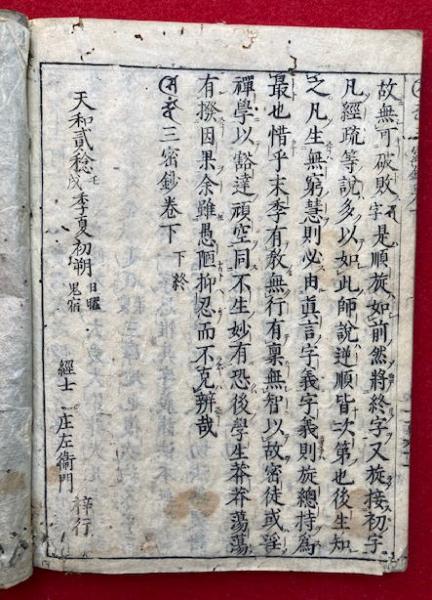 故無可破敗字是順旋如前然將終字又旋接初字
凡經疏等說多以如此師說逆順皆次第也後生知
之凡生無窮慧則必由真言字義字義則旋總持為
最也惜乎末季有教無行有稟無智以故密徒或淫
禪學以豁達頑空同不生妙有恐後學生莽莽蕩蕩
有撥因果余雖愚陋抑忍而不克辨哉
三密鈔卷下 下終
天和貳稔壬戌季夏初朔日曜鬼宿
經士 庄左衞門 梓行